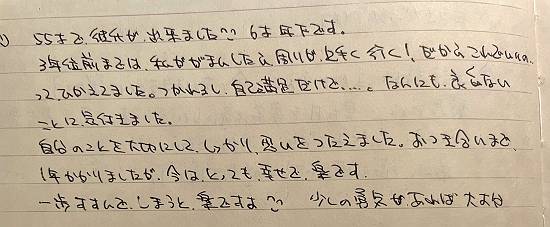 55才で、彼氏が、出来ました^^ 6才年下です。
3年位前までは、私ががまんしたら周りが、上手く行く!、だから、これでいいの、
ってひかえてました。つかれるし、自己満足だけで、……。なんにも、良くない
ことに気付きました。
自分のことを大切にして、しっかり、思いをつたえました。おつき合いまで、
1年かかりましたが、今は、とっても、幸せで、楽です。
一歩すすんで、しまうと、楽ですよ^^ 少しの勇気が、あれば大丈夫